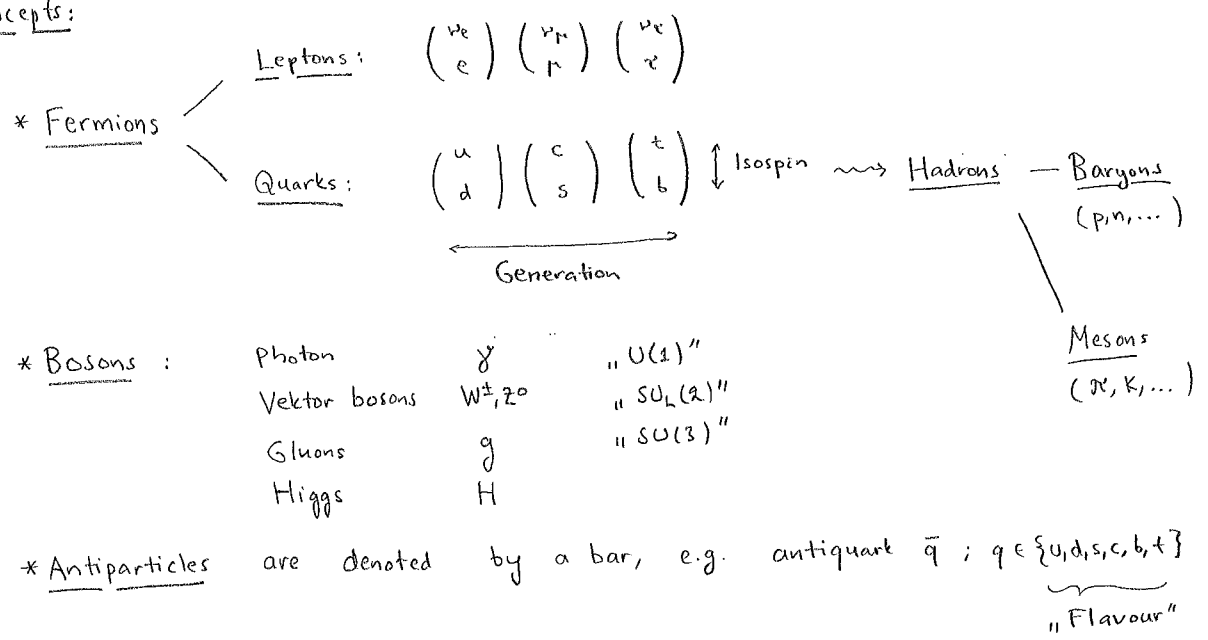 ncepts:
Leptons: (νe e) (νμ μ) (ντ τ)
* Fermions
Quarks: (u d) (c s) (t b) ↕ Isospin ⇝ Hadrons — Baryons
(p,n,...)
Generation
* Bosons : Photon γ „U(1)"
Mesons
Vektor bosons W±, Z⁰ „SU_L(2)"
(π, K, ...)
Gluons g „SU(3)"
Higgs H
* Antiparticles are denoted by a bar, e.g. antiquark q̄ ; q ∈ {u,d,s,c,b,t}
„Flavour"